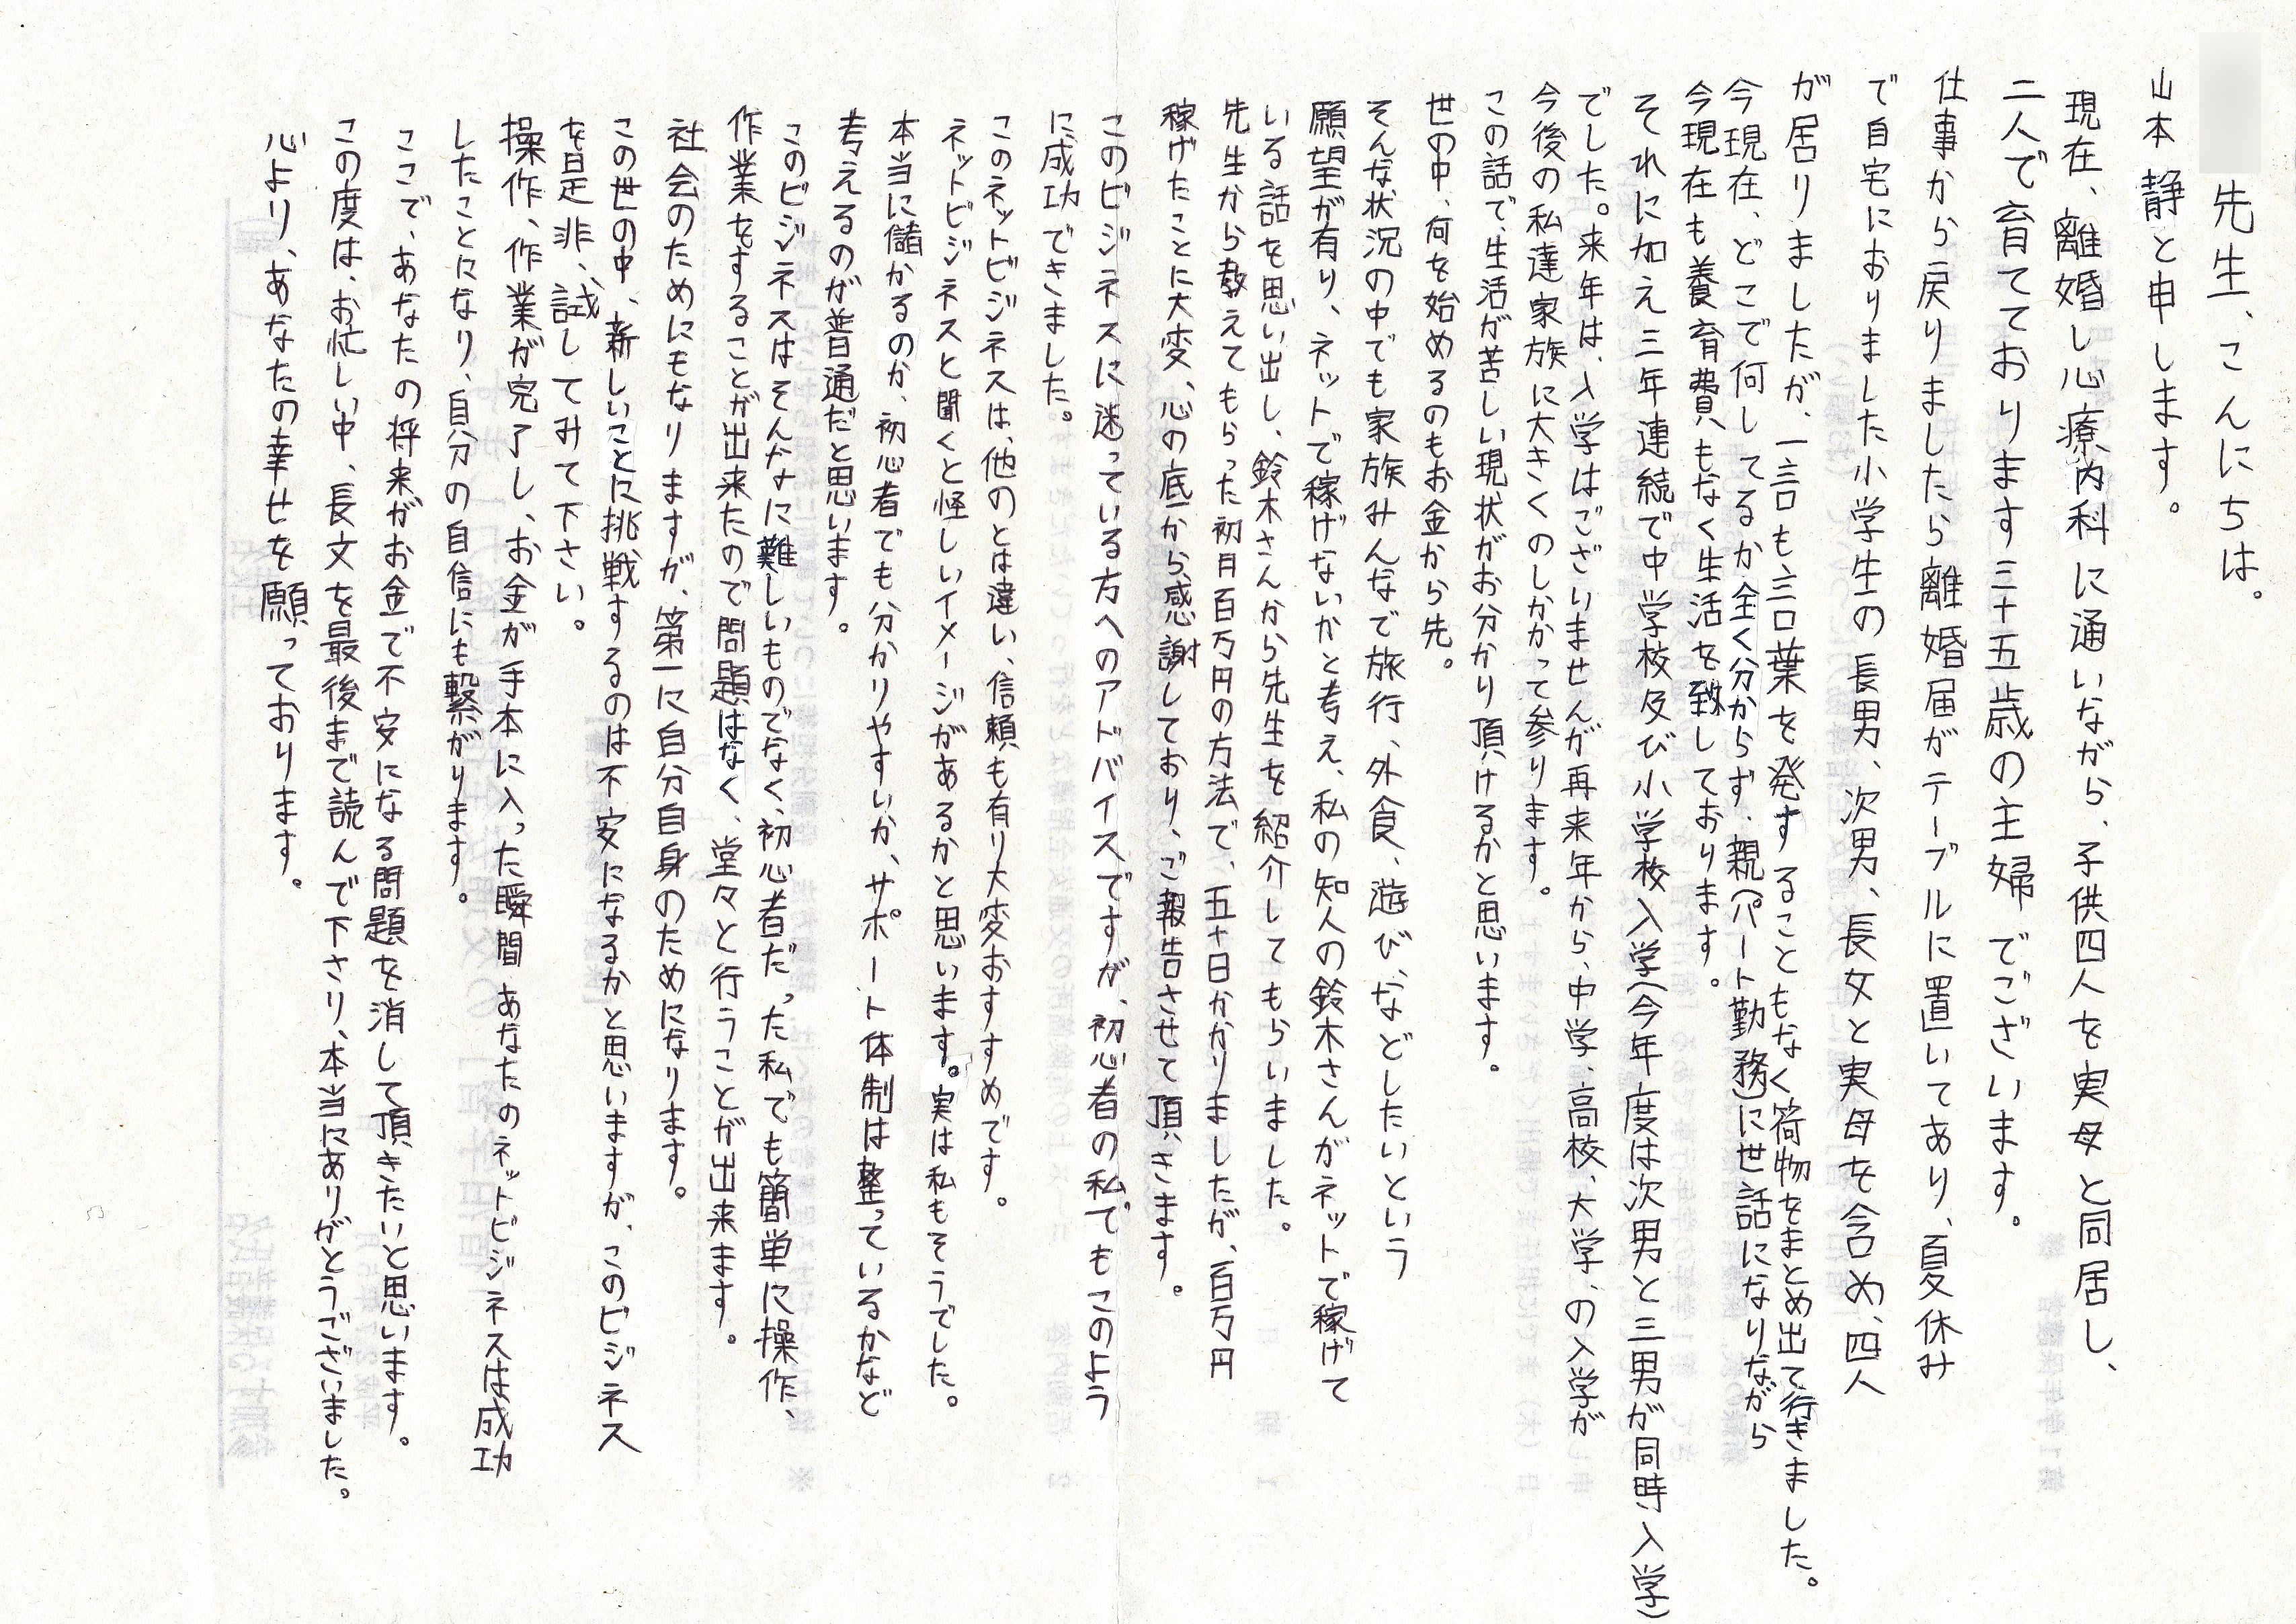 先生、こんにちは。
山本 静と申します。
現在、離婚し心療内科に通いながら、子供四人を実母と同居し、
二人で育てております三十五歳の主婦でございます。
仕事から戻りましたら離婚届がテーブルに置いてあり、夏休み
で自宅におりました小学生の長男、次男、長女と実母を含め、四人
が居りましたが、一言も言葉を発することもなく荷物をまとめ出て行きました。
今現在、どこで何してるか全く分からず、親(パート勤務)に世話になりながら
今現在も養育費もなく生活を致しております。
それに加え三年連続で中学校及び小学校入学(今年度は次男と三男が同時入学)
でした。来年は、入学はございませんが再来年から、中学、高校、大学、の入学が
今後の私達家族に大きくのしかかって参ります。
この話で、生活が苦しい現状がお分かり頂けるかと思います。
世の中、何を始めるのもお金から先。
そんな状況の中でも家族みんなで旅行、外食、遊び、などしたいという
願望が有り、ネットで稼げないかと考え、私の知人の鈴木さんがネットで稼げて
いる話を思い出し、鈴木さんから先生を紹介してもらいました。
先生から教えてもらった初月百万円の方法で、五十日かかりましたが、百万円
稼げたことに大変、心の底から感謝しており、ご報告させて頂きます。
このビジネスに迷っている方へのアドバイスですが、初心者の私でもこのよう
に成功できました。
このネットビジネスは、他のとは違い、信頼も有り大変おすすめです。
ネットビジネスと聞くと怪しいイメージがあるかと思います。実は私もそうでした。
本当に儲かるのか、初心者でも分かりやすいか、サポート体制は整っているかなど
考えるのが普通だと思います。
このビジネスはそんなに難しいものでなく、初心者だった私でも簡単に操作、
作業をすることが出来たので問題はなく、堂々と行うことが出来ます。
社会のためにもなりますが、第一に自分自身のためになります。
この世の中、新しいことに挑戦するのは不安になるかと思いますが、このビジネス
を是非、試してみて下さい。
操作、作業が完了し、お金が手本に入った瞬間あなたのネットビジネスは成功
したことになり、自分の自信にも繋がります。
ここで、あなたの将来がお金で不安になる問題を消して頂きたいと思います。
この度は、お忙しい中、長文を最後まで読んで下さり、本当にありがとうございました。
心より、あなたの幸せを願っております。